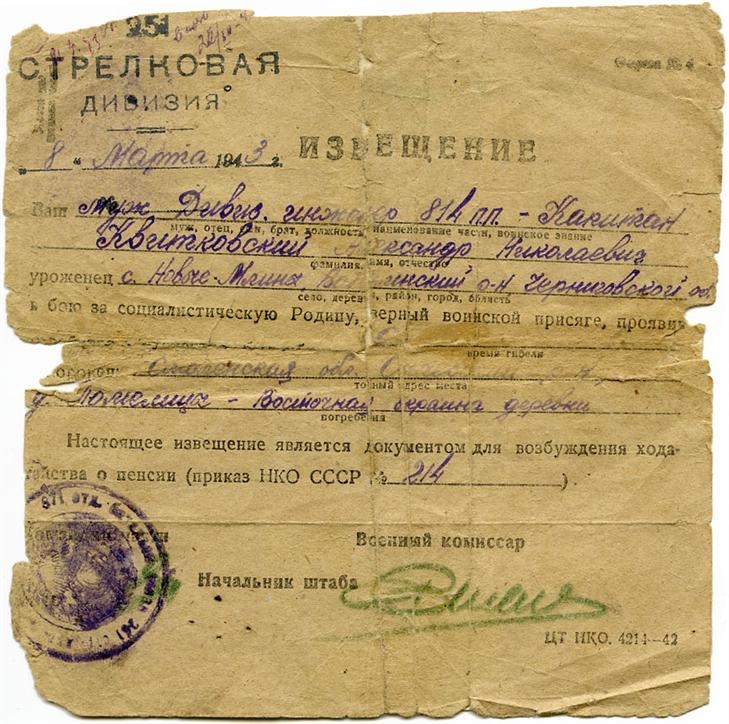 251
СТРЕЛКОВАЯ
ДИВИЗИЯ
Форма № 4
„ 8 " Марта 1943 г.
ИЗВЕЩЕНИЕ
Ваш муж Дивиз. инженер 814 пп. - Капитан
муж, отец, сын, брат, должность, наименование части, воинское звание
Квитковский Александр Николаевич
фамилия, имя, отчество
уроженец с. Новые-Млины, нский р-н Черниговской об.
село, деревня, район, город, область
в бою за социалистическую Родину, верный воинской присяге, прояви
время гибели
Смоленская обл.
точный адрес места
д. - Восточная окраина деревни
погребения
Настоящее извещение является документом для возбуждения хода-
тайства о пенсии (приказ НКО СССР № 214 ).
Командир части
Военный комиссар
Начальник штаба
ЦТ НКО. 4214—42